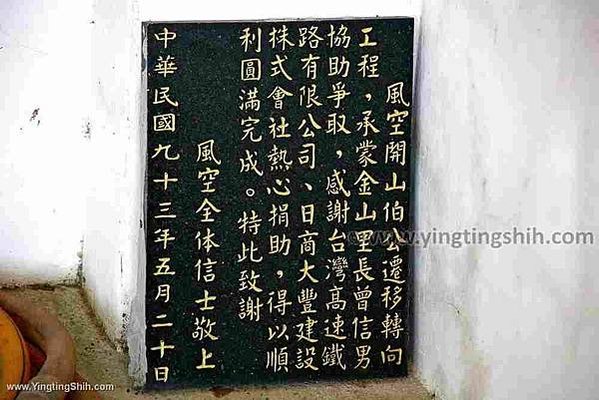 風空開山伯公遷移轉向
工程，承蒙金山里長曾信男
協助爭取，感謝台灣高速鐵
路有限公司、日商大豐建設
株式會社熱心捐助，得以順
利圓滿完成。特此致謝
風空全体信士敬上
中華民國九十三年五月二十日
www.yingtingshih.com
www.YingtingShih.com